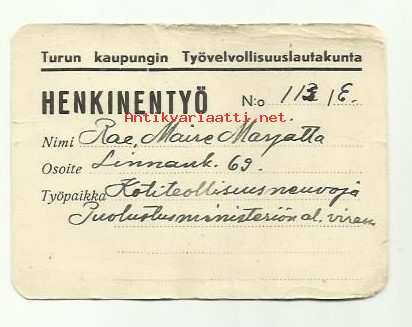 Turun kaupungin Työvelvollisuuslautakunta
HENKINENTYÖ N:o 113 / E.
Antikvariaatti.net
Nimi Rae, Maire Marjatta
Osoite Linnank. 69.
Työpaikka Kotiteollisuusneuvoja
Puolustusministeriön al. viran